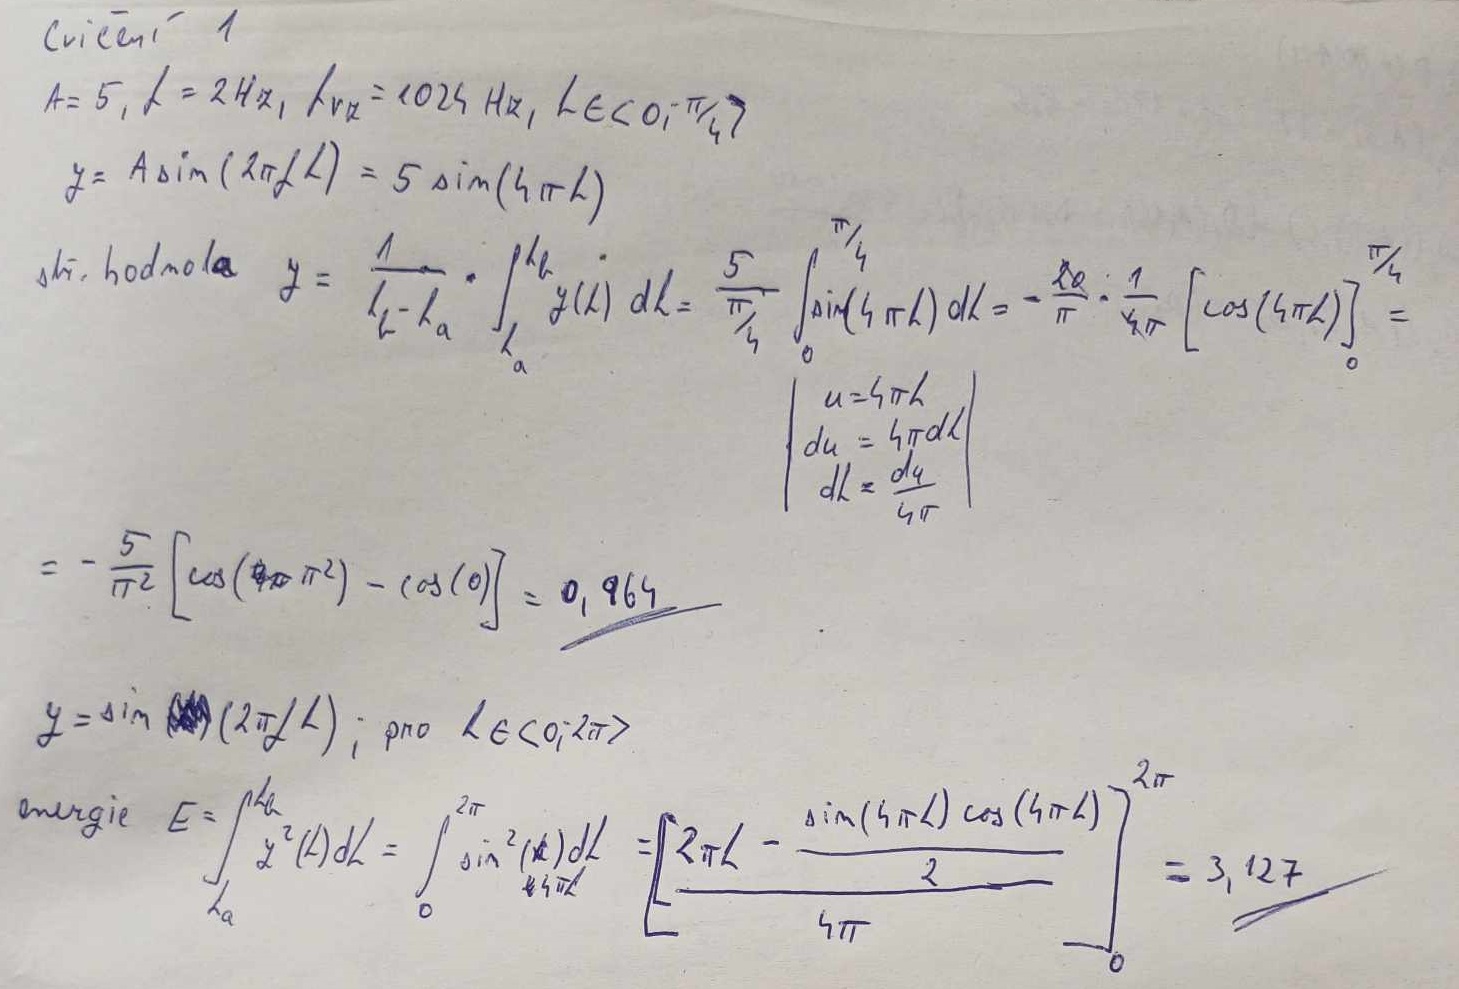 Cvičení 1
A = 5, f = 2 Hz, fvz = 1024 Hz, t ∈ <0; π/4>
y = A sin(2πft) = 5 sin(4πt)
stř. hodnota y = 1/(t_b - t_a) · ∫_{t_a}^{t_b} y(t) dt = 5/(π/4) ∫_0^{π/4} sin(4πt) dt = - 20/π · 1/4π [cos(4πt)]_0^{π/4} =
| u = 4πt |
| du = 4πdt |
| dt = du/4π |
= - 5/π² [cos(π²) - cos(0)] = 0,964
y = sin (2πft); pro t ∈ <0; 2π>
energie E = ∫_{t_a}^{t_b} y²(t) dt = ∫_0^{2π} sin²(4πt) dt = [(2πt - sin(4πt) cos(4πt)/2)/4π]_0^{2π} = 3,127